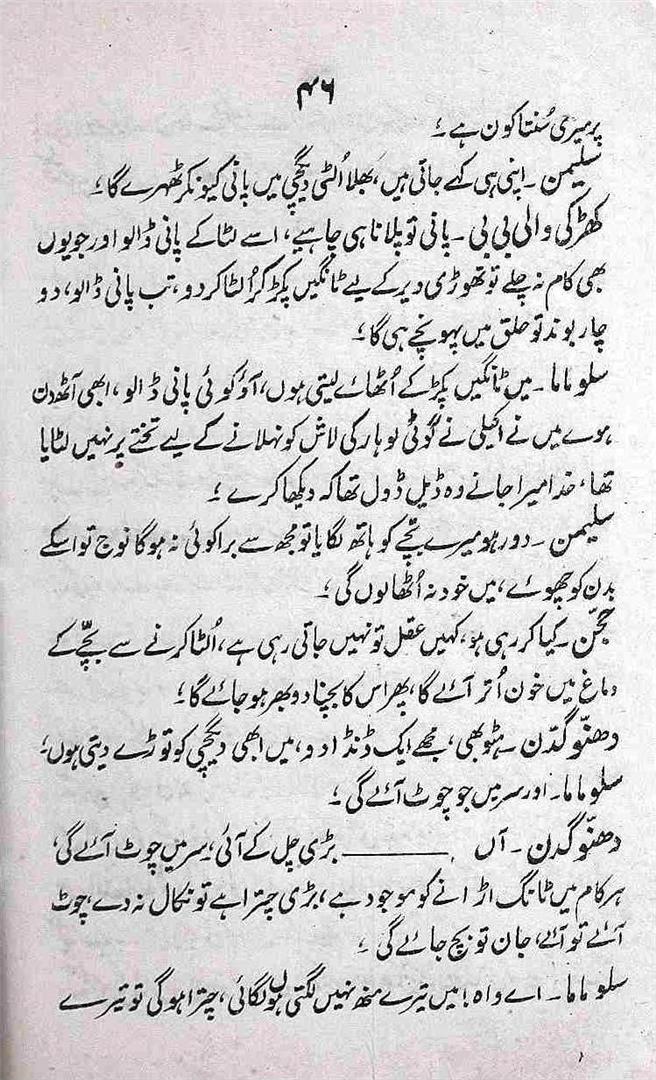 ۴۶
پر میری سُنتا کون ہے ؛
سلیمن ۔ اپنی ہی کہے جاتی ہیں، بھلا اُلٹی دیگچی میں پانی کیونکر ٹھہرے گا ؛
کھڑکی والی بی بی ۔ پانی تو پلانا ہی چاہیے، اسے لٹا کے پانی ڈالو اور جو یوں
بھی کام نہ چلے تو تھوڑی دیر کے لیے ٹانگیں پکڑ کر اُلٹا کر دو، تب پانی ڈالو، دو
چار بوند تو حلق میں پہونچے ہی گا ؛
سلو ماما ۔ میں ٹانگیں پکڑ کے اُٹھائے لیتی ہوں، آؤ کوئی پانی ڈالو، ابھی آٹھ دن
ہوے میں نے اکیلی نے گوٹی لوہار کی لاش کو نہلانے کے لیے تختے پر نہیں لٹایا
تھا، خدا میرا جانے وہ ڈیل ڈول تھا کہ دیکھا کرے ؛
سلیمن ۔ دور ہو میرے بچّے کو ہاتھ لگایا تو مجھ سے برا کوئی نہ ہوگا نوج تو اسکے
بدن کو چھوئے، میں خود نہ اُٹھالوں گی ؛
حجّن ۔ کیا کر رہی ہو، کہیں عقل تو نہیں جاتی رہی ہے، اُلٹا کرنے سے بچّے کے
دماغ میں خون اُتر آئے گا، پھر اس کا بچنا دوبھر ہو جائے گا ؛
دھنّو گدّن ۔ ہٹو بھی، مجھے ایک ڈنڈا دو، میں ابھی دیگچی کو توڑے دیتی ہوں ؛
سلو ماما ۔ اور سر میں جو چوٹ آئے گی ؛
دھنّو گدن ۔ آں ——— بڑی چل کے آئی، سر میں چوٹ آئے گی،
ہر کام میں ٹانگ اڑانے کو موجود ہے، بڑی چترا ہے تو نکال نہ دے، چوٹ
آئے تو آئے، جان تو بچ جائے گی ؛
سلو ماما ۔ اے واہ! میں تیرے منھ نہیں لگتی ہوں لگائی، چترا ہوگی تو تیرے